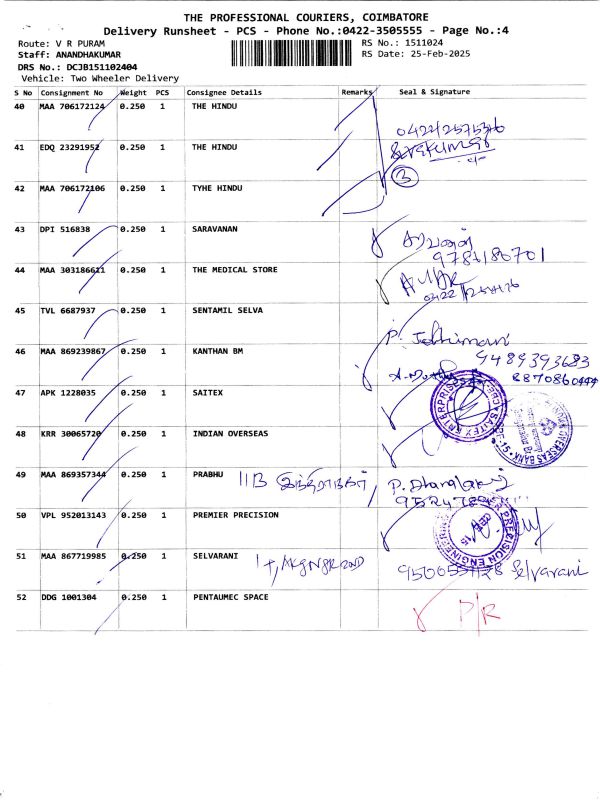 THE PROFESSIONAL COURIERS, COIMBATORE
Delivery Runsheet - PCS - Phone No.:0422-3505555 - Page No.:4
Route: V R PURAM
RS No.: 1511024
Staff: ANANDHAKUMAR
RS Date: 25-Feb-2025
DRS No.: DCJB151102404
Vehicle: Two Wheeler Delivery
S No Consignment No Weight PCS Consignee Details Remarks Seal & Signature
40 MAA 706172124 0.250 1 THE HINDU
41 EDQ 23291952 0.250 1 THE HINDU
3
42 MAA 706172106 0.250 1 TYHE HINDU
43 DPI 516838 0.250 1 SARAVANAN
சரவணன்
44 MAA 303186611 0.250 1 THE MEDICAL STORE
45 TVL 6687937 0.250 1 SENTAMIL SELVA
46 MAA 869239867 0.250 1 KANTHAN BM
9489393683
8870860444
47 APK 1228035 0.250 1 SAITEX
SAITEX ENTERPRISES
48 KRR 30065720 0.250 1 INDIAN OVERSEAS
INDIAN OVERSEAS BANK
49 MAA 869357344 0.250 1 PRABHU 11B
50 VPL 952013143 0.250 1 PREMIER PRECISION
PRECISION ENGINEERING
CBE 15
51 MAA 867719985 0.250 1 SELVARANI
Selvarani
52 DDG 1001304 0.250 1 PENTAUMEC SPACE P/R